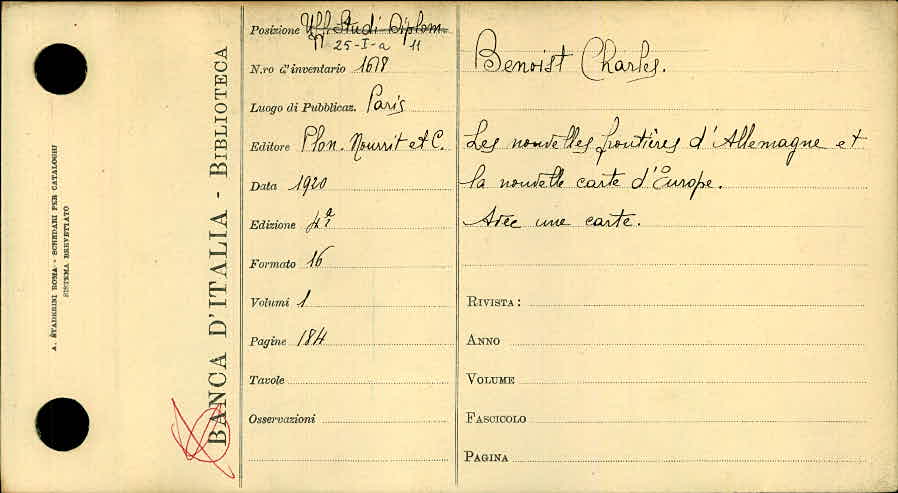 A. STADERINI ROMA - SCHEDARI PER CATALOGHI
SISTEMA BREVETTATO
BANCA D'ITALIA - BIBLIOTECA
Posizione Uff. Studi Diplom.
25-I-a 11
N.ro d'inventario 1678
Luogo di Pubblicaz. Paris
Editore Plon. Nourrit et C.
Data 1920
Edizione 4ª
Formato 16
Volumi 1
Pagine 184
Tavole
Osservazioni
Benoist Charles.
Les nouvelles frontières d'Allemagne et
la nouvelle carte d'Europe.
Avec une carte.
RIVISTA:
ANNO
VOLUME
FASCICOLO
PAGINA